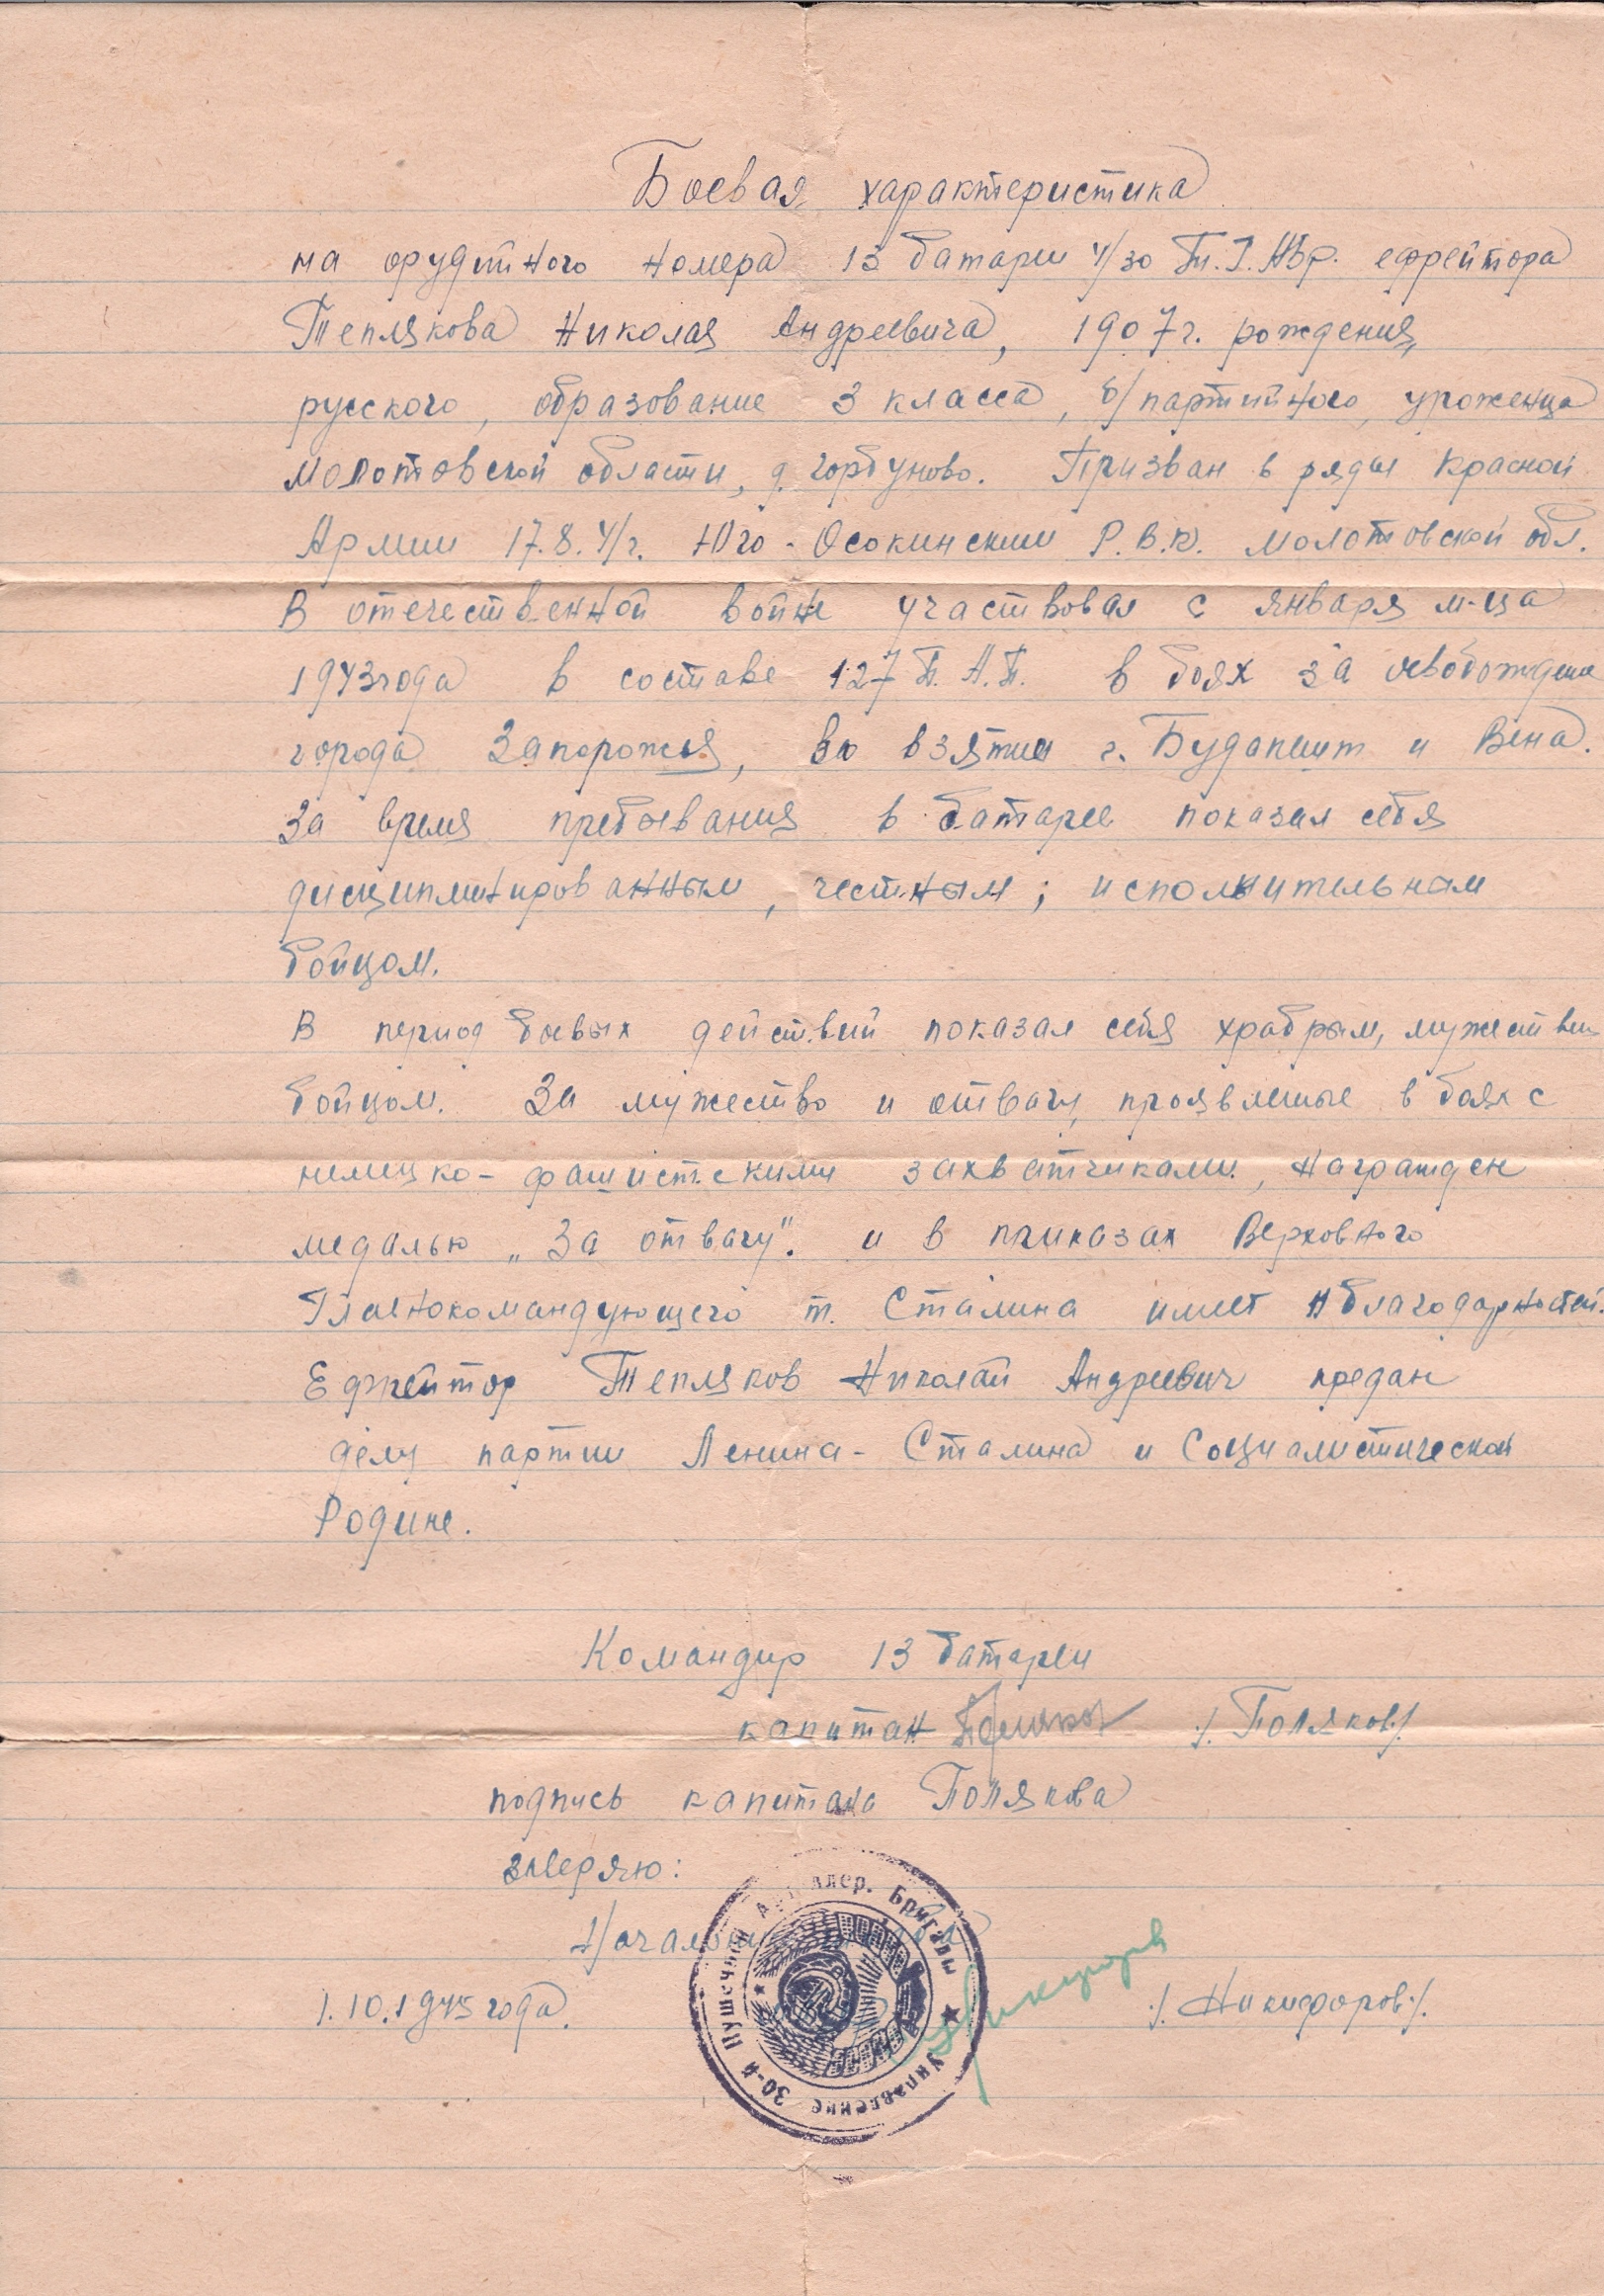 Боевая характеристика
на орудийного номера 13 батареи 4/30 ефрейтора
Теплякова Николая Андреевича, 1907 г. рождения,
русского, образование 3 класса, б/партийного, уроженца
Молотовской области, д. Горбуново. Призван в ряды Красной
Армии 17.8.41г. Юго-Осокинским Р.В.К. Молотовской обл.
В отечественной войне участвовал с января м-ца
1943 года в составе 127 П.А.П. в боях за освобождение
города Запорожья, во взятии г. Будапешт и Вена.
За время пребывания в батарее показал себя
дисциплинированным, честным, исполнительным
бойцом.
В период боевых действий показал себя храбрым, мужествен
бойцом. За мужество и отвагу, проявленые в боях с
немецко-фашистскими захватчиками, награжден
медалью „За отвагу". и в приказах Верховного
Главнокомандующего т. Сталина имеет благодарностей.
Ефрейтор Тепляков Николай Андреевич предан
делу партии Ленина-Сталина и Социалистической
Родине.
Командир 13 батареи
капитан Поляков /Поляков/.
подпись капитана Полякова
заверяю:
Начальник штаба
1.10.1945 года. Никифоров /Никифоров/.
Управление 30-й Пушечной Артиллер. Бригады